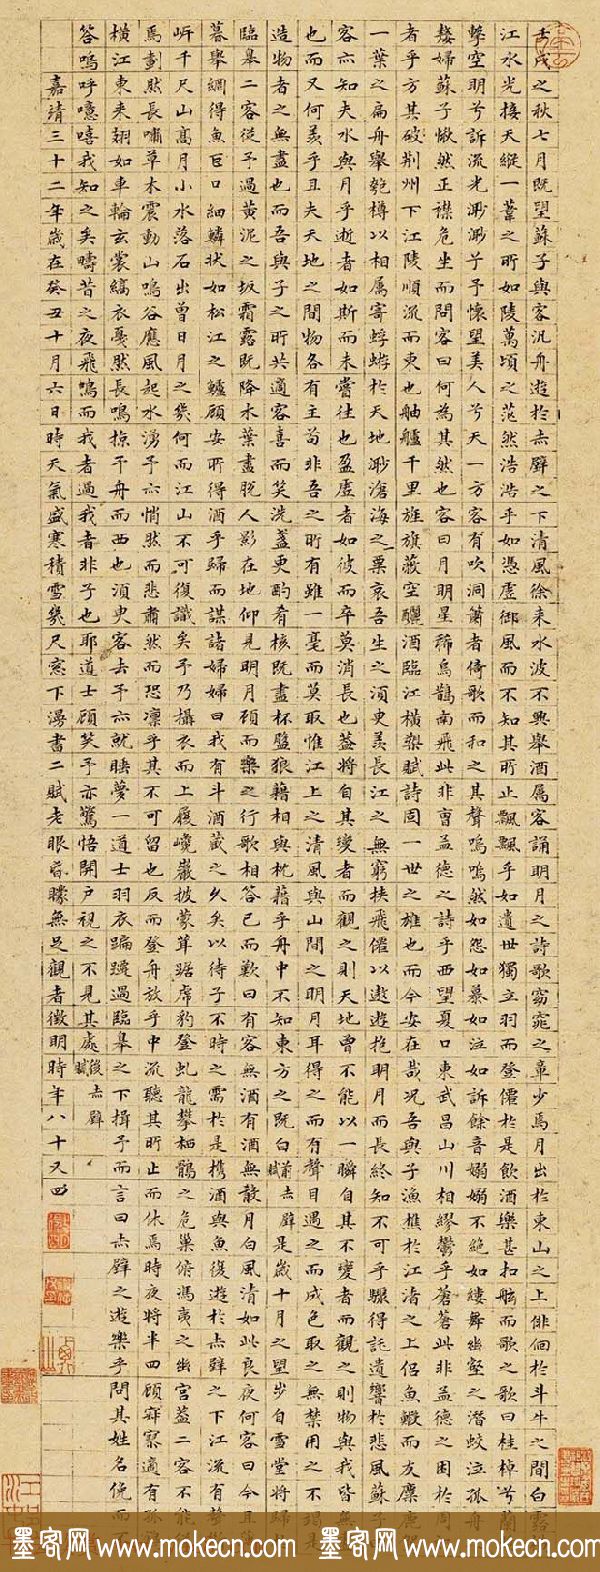 壬戌之秋七月既望蘇子與客汎舟遊於赤壁之下清風徐來水波不興舉酒屬客誦明月之詩歌窈窕之章少焉月出於東山之上徘徊於斗牛之間白露
江水光接天縱一葦之所如陵萬頃之茫然浩浩乎如憑虛御風而不知其所止飄飄乎如遺世獨立羽而登僊於是飲酒樂甚扣舷而歌之歌曰桂棹兮蘭
擊空明兮訴流光渺渺兮予懷望美人兮天一方客有吹洞簫者倚歌而和之其聲嗚嗚然如怨如慕如泣如訴餘音嫋嫋不絕如縷舞幽壑之潛蛟泣孤舟
嫠婦蘇子愀然正襟危坐而問客曰何為其然也客曰月明星稀烏鵲南飛此非曹孟德之詩乎西望夏口東武昌山川相繆鬱乎蒼蒼此非孟德之困於周
者乎方其破荊州下江陵順流而東也舳艫千里旌旗蔽空釃酒臨江橫槊賦詩固一世之雄也而今安在哉況吾與子漁樵於江渚之上侶魚鰕而友麋鹿
一葉之扁舟舉匏樽以相屬寄蜉蝣於天地渺滄海之粟哀吾生之須臾羨長江之無窮挾飛僊以遨遊抱明月而長終知不可乎驟得託遺響於悲風蘇子
客亦知夫水與月乎逝者如斯而未嘗往也盈虛者如彼而卒莫消長也蓋將自其變者而觀之則天地曾不能以一瞬自其不變者而觀之則物與我皆無
也而又何羨乎且夫天地之間物各有主苟非吾之所有雖一毫而莫取惟江上之清風與山間之明月耳得之而有聲目遇之而成色取之無禁用之不竭是
造物者之無盡也而吾與子之所共適客喜而笑洗盞更酌肴核既盡杯盤狼藉相與枕藉乎舟中不知東方之既白前赤壁賦是歲十月之望步自雪堂將歸
臨皋二客從予過黃泥之坂霜露既降木葉盡脫人影在地仰見明月顧而樂之行歌相答已而歎曰有客無酒有酒無殽月白風清如此良夜何客曰今且薄
暮舉網得魚巨口細鱗狀如松江之鱸顧安所得酒乎歸而謀諸婦婦曰我有斗酒藏之久矣以待子不時之需於是攜酒與魚復遊於赤壁之下江流有聲
岸千尺山高月小水落石出曾日月之幾何而江山不可復識矣予乃攝衣而上履巉巖披蒙茸踞虎豹登虬龍攀栖鶻之危巢俯馮夷之幽宮蓋二客不能
焉劃然長嘯草木震動山鳴谷應風起水湧予亦悄然而悲肅然而恐凜乎其不可留也反而登舟放乎中流聽其所止而休焉時夜將半四顧寂寥適有孤
橫江東來翅如車輪玄裳縞衣戛然長鳴掠予舟而西也須臾客去予亦就睡夢一道士羽衣蹁躚過臨皋之下揖予而言曰赤壁之遊樂乎問其姓名俛而不
答嗚呼噫嘻我知之矣疇昔之夜飛鳴而我者過我者非子也耶道士顧笑予亦驚悟開戶視之不見其處後赤壁賦
嘉靖三十二年歲在癸丑十月六日時天氣盛寒積雪幾尺窓下漫書二賦老眼昏矇無足觀者徵明時年八十又四
墨客网 www.mokecn.com 墨客网 www.mokecn.com